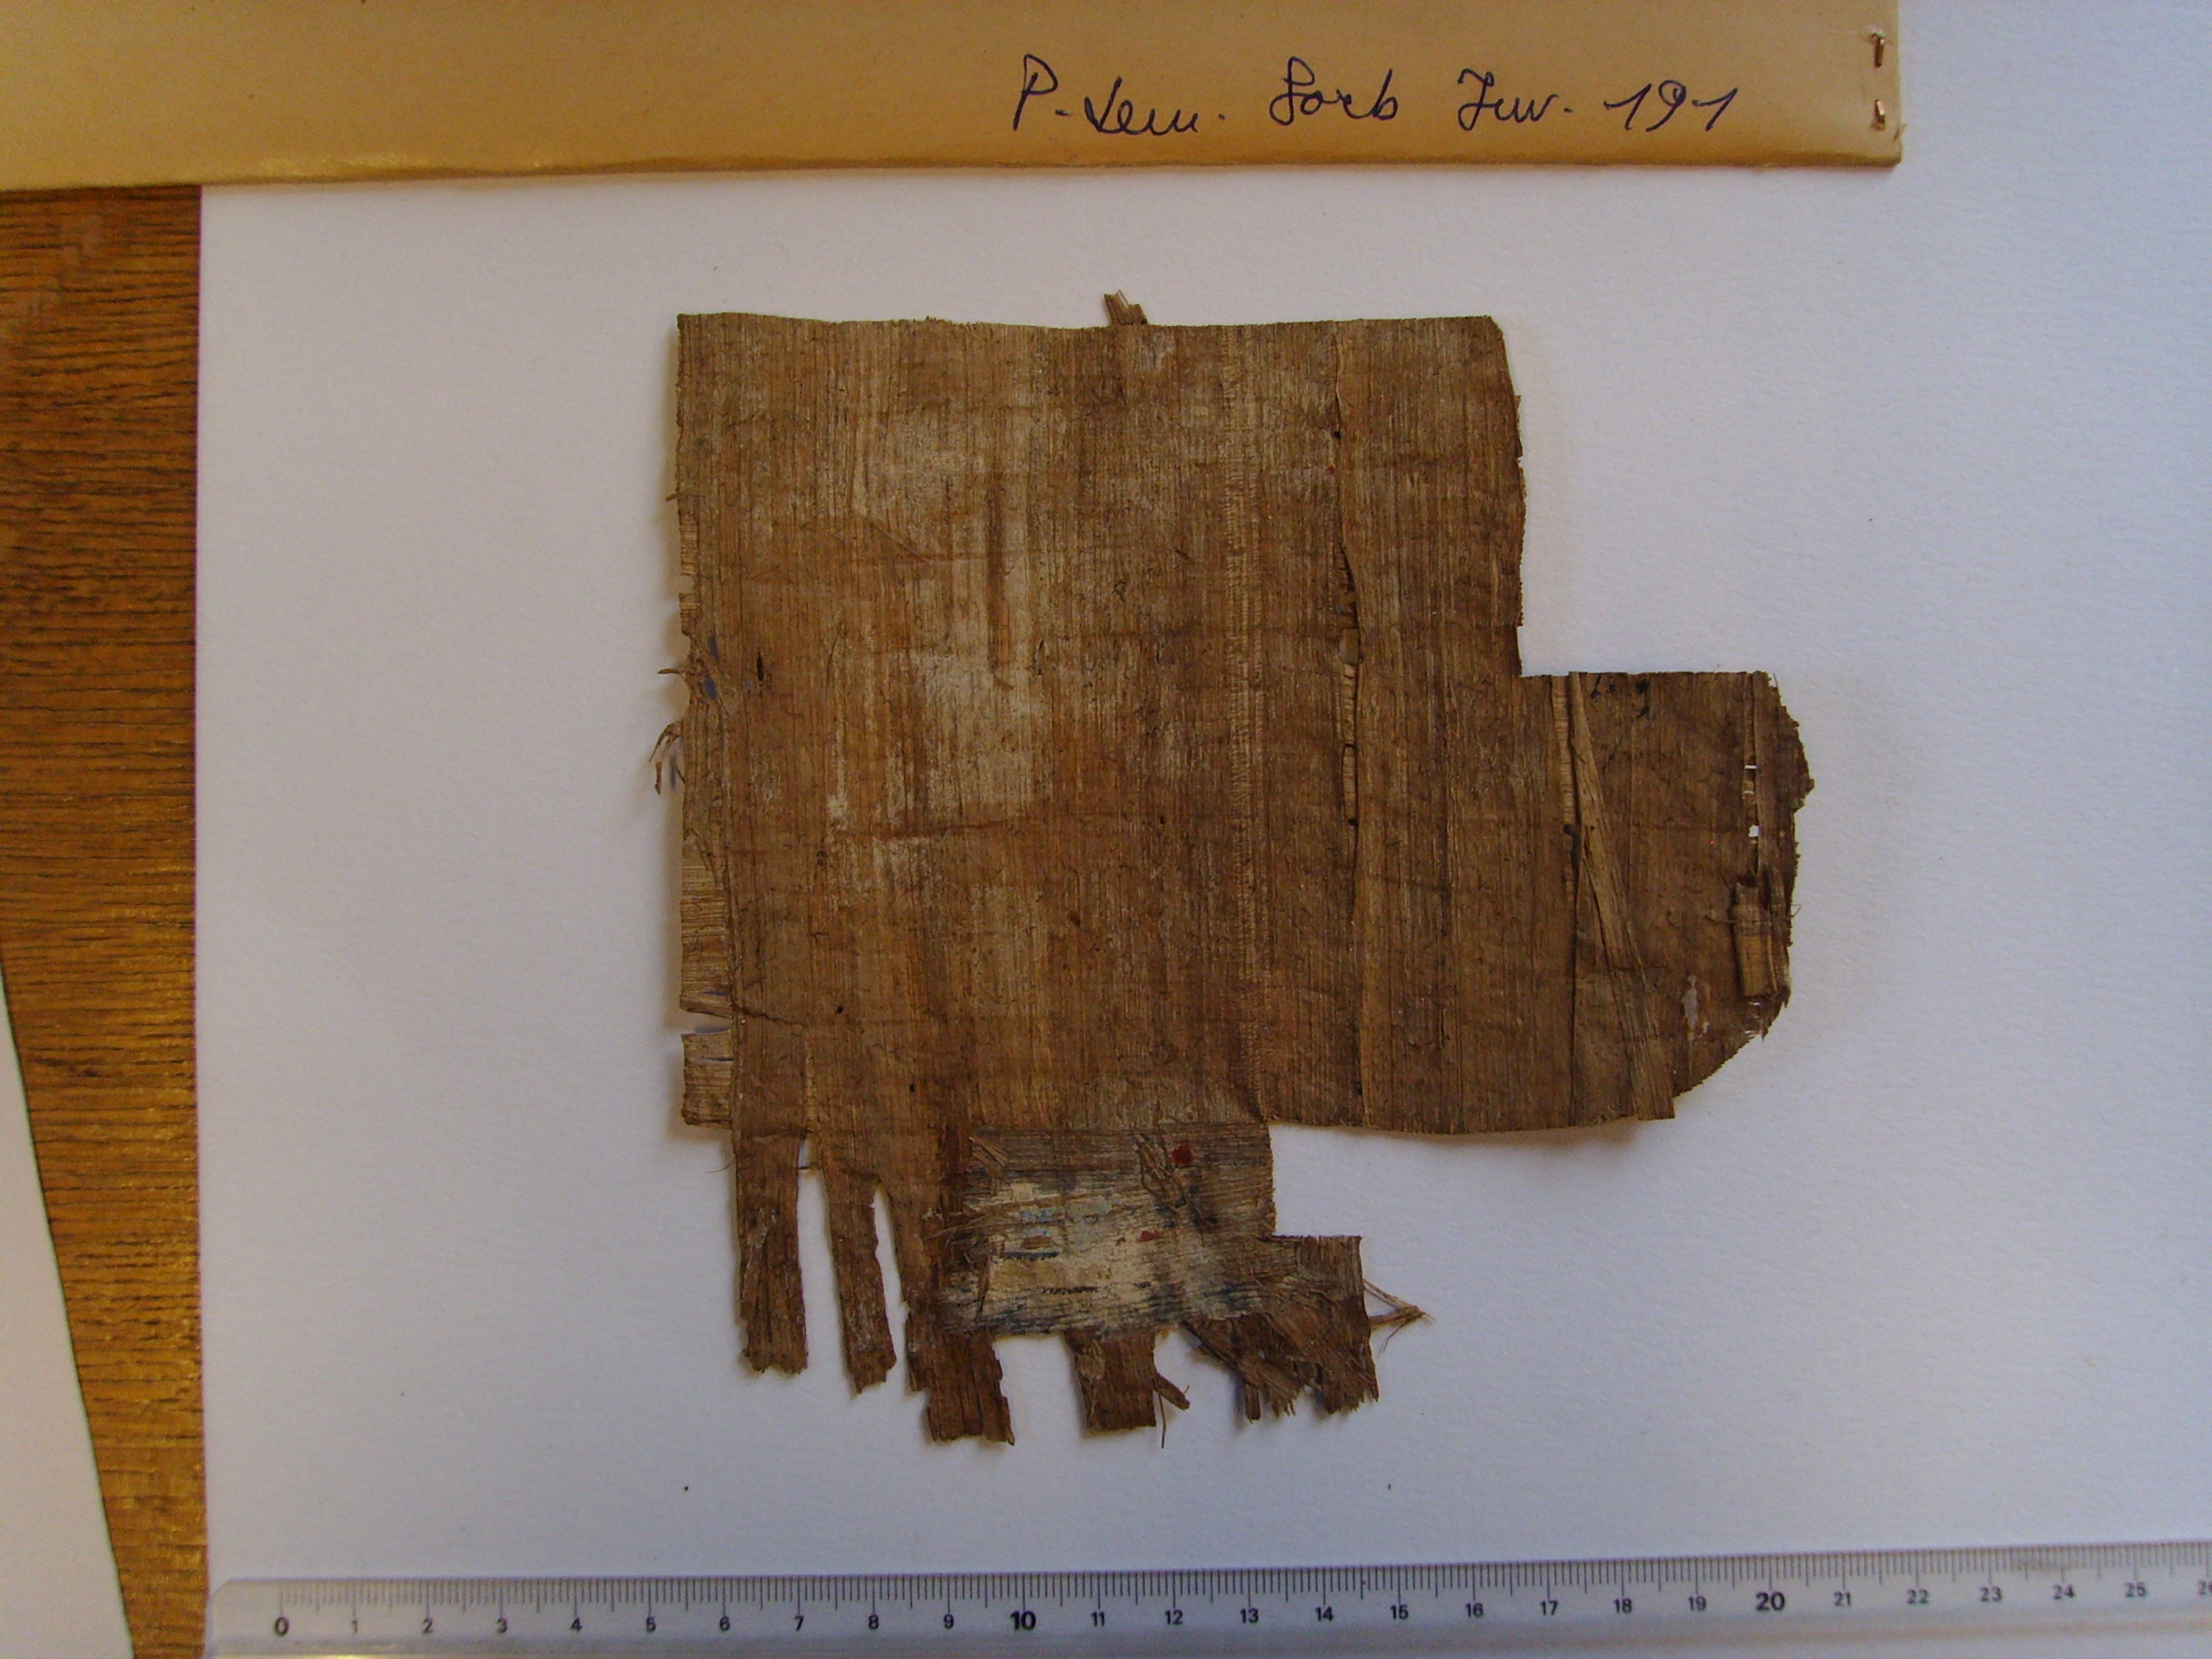 P. dem. Sorb Inv. 191
0 1 2 3 4 5 6 7 8 9 10 11 12 13 14 15 16 17 18 19 20 21 22 23 24 25